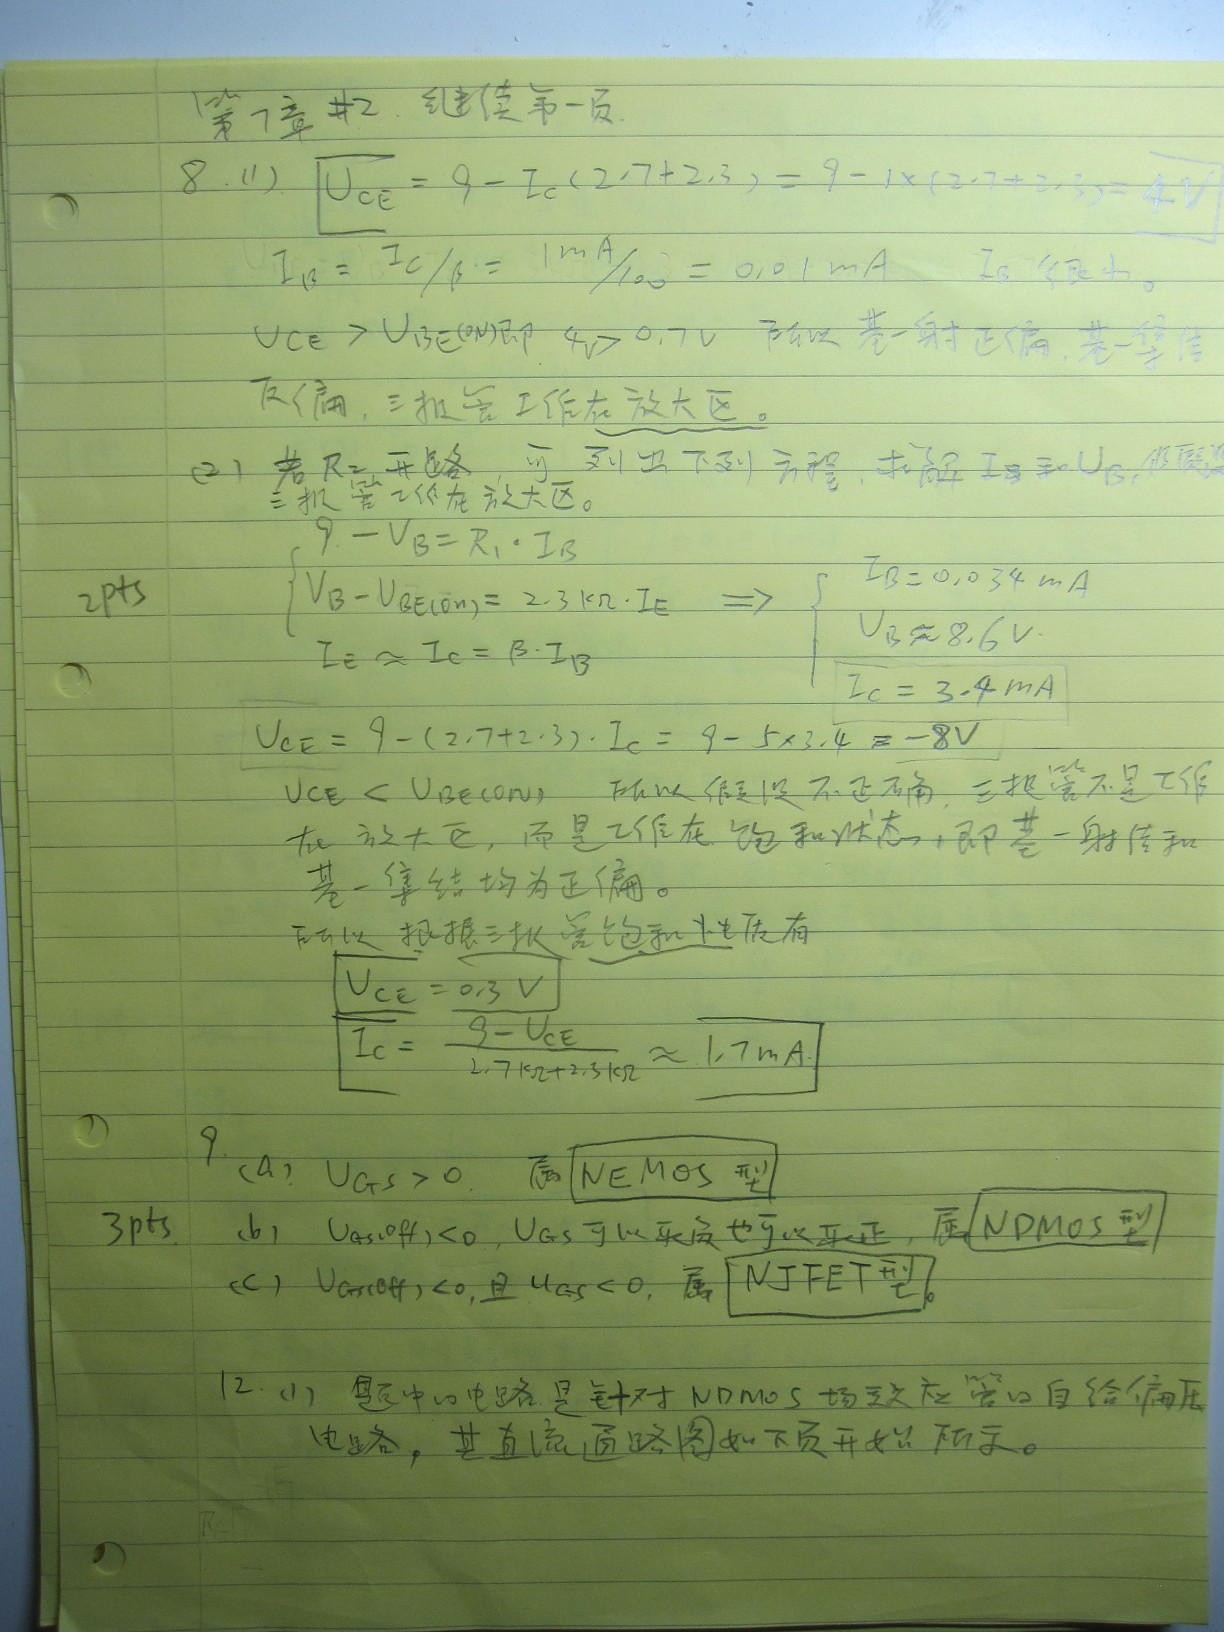 第7章 #2. 继续第一页.
8.(1). U_CE = 9 - I_C (2.7+2.3) = 9 - 1×(2.7+2.3) = 4V
I_B = I_C/β = 1mA/100 = 0.01mA I_B 很小。
U_CE > U_BE(ON) 即 4V > 0.7V 所以 基一射正偏, 基一集结
反偏, 三极管工作在放大区。
(2) 若 R2 开路, 可列出下列方程, 求解 I_B 和 U_B, 假设
三极管工作在放大区。
9 - V_B = R_1 · I_B
2pts V_B - U_BE(on) = 2.3kΩ · I_E ⇒ I_B = 0.034 mA
I_E ≈ I_C = β · I_B V_B ≈ 8.6V.
I_C = 3.4mA
U_CE = 9 - (2.7+2.3) · I_C = 9 - 5×3.4 = -8V
U_CE < U_BE(ON) 所以假设不正确, 三极管不是工作
在放大区, 而是工作在饱和状态, 即基一射结和
基一集结均为正偏。
所以 根据三极管饱和性质有
U_CE = 0.3 V
I_C = 9 - U_CE / 2.7kΩ+2.3kΩ ≈ 1.7mA.
9. (a) U_GS > 0. 属 NEMOS 型
3pts. (b) U_GS(off) < 0, U_GS 可以取负也可以取正, 属 NDMOS 型
(c) U_GS(off) < 0, 且 U_GS < 0, 属 NJFET 型。
12. (1) 题中的电路是针对 NDMOS 场效应管的自给偏压
电路, 其直流通路图如下页开始所示。